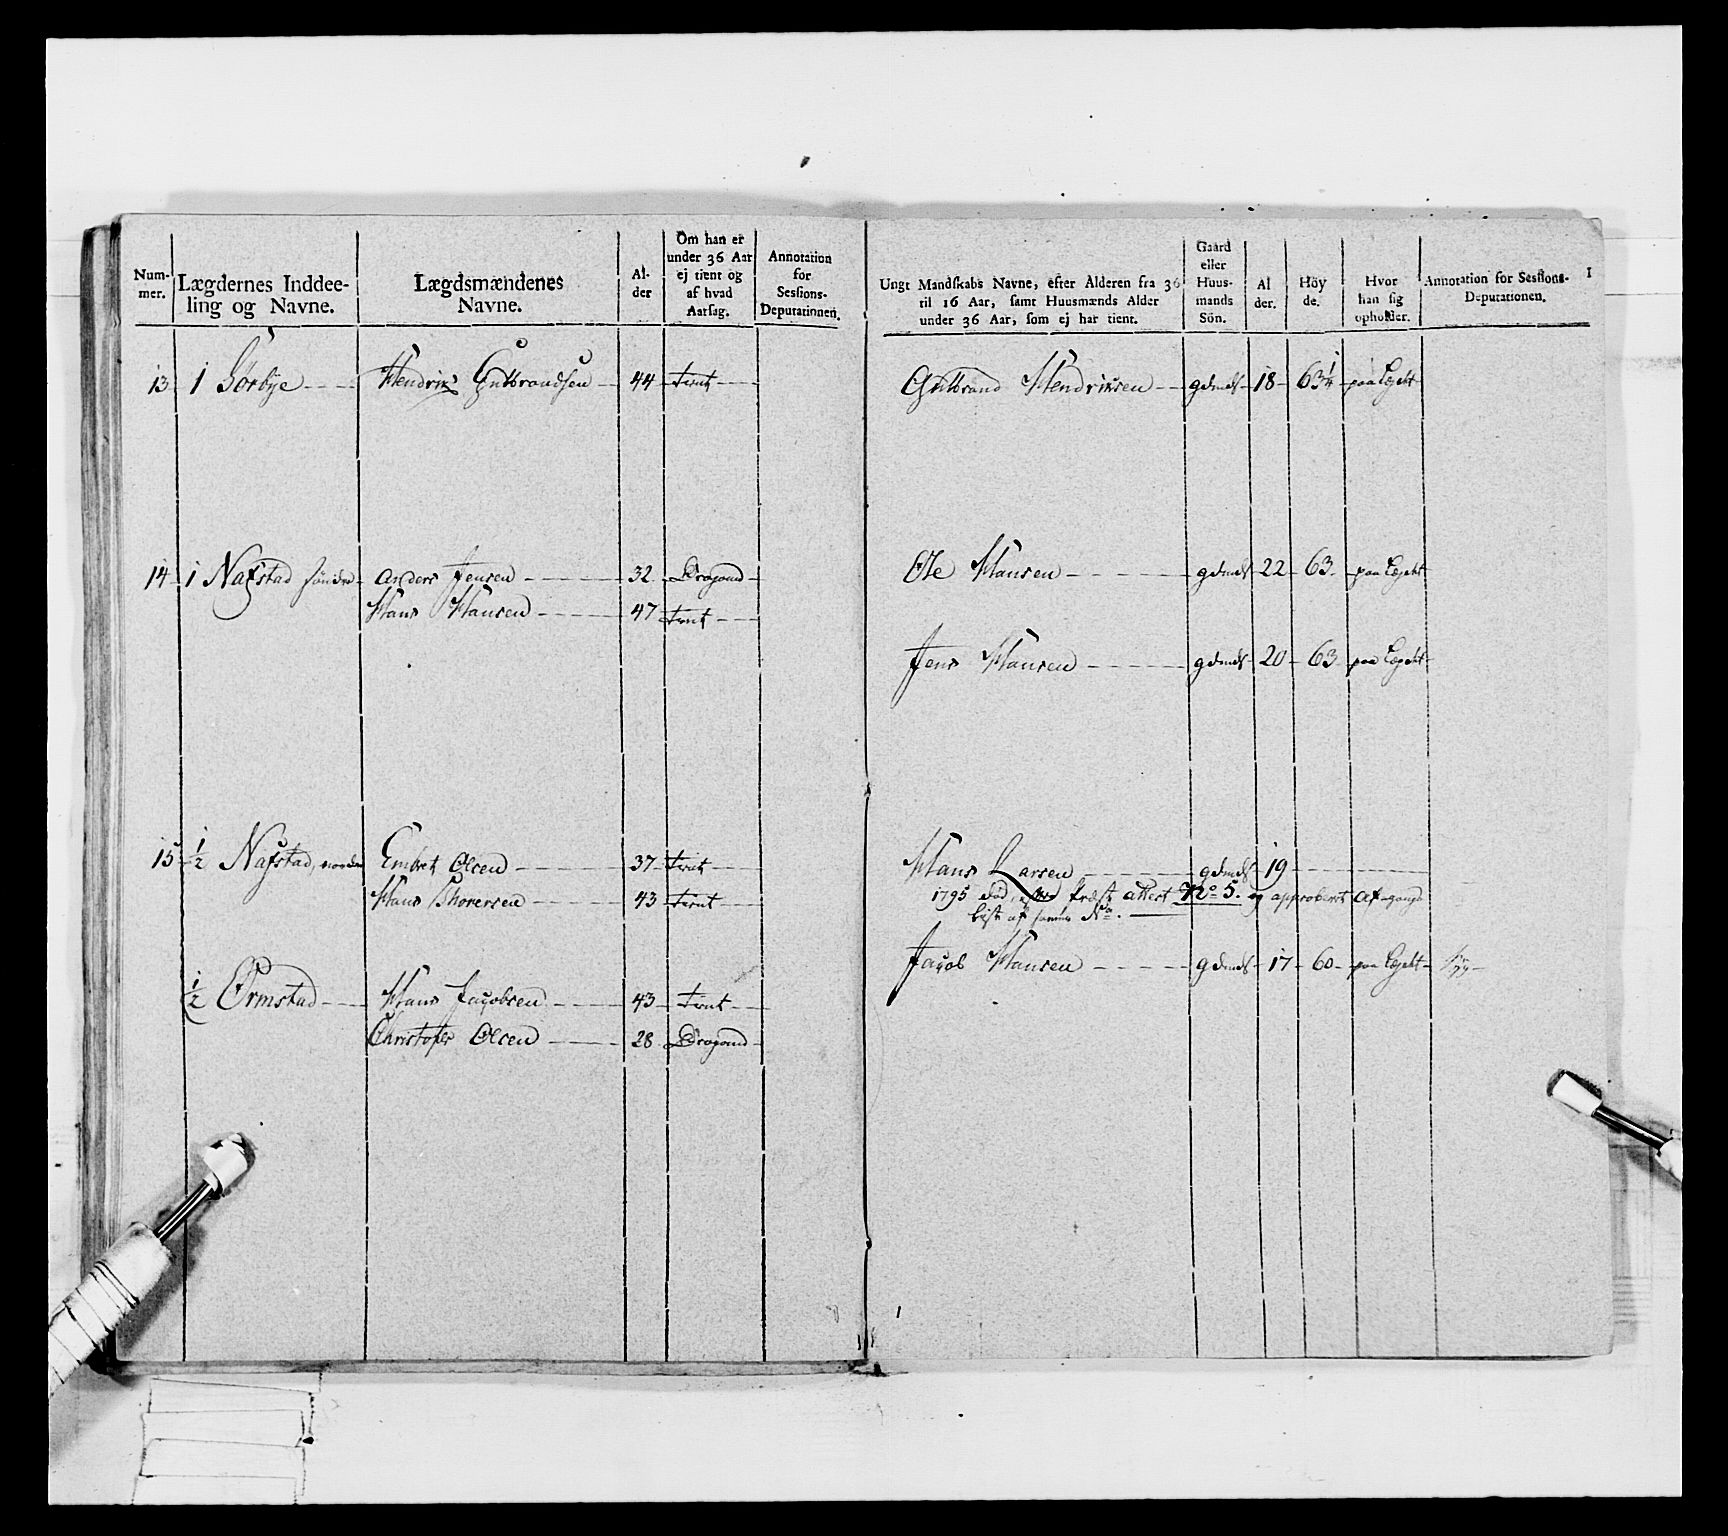 Num-
mer.
Lægdernes Inddee-
ling og Navne.
Lægdsmændenes
Navne.
Al-
der
Om han er
under 36 Aar
ej tient og
af hvad
Aarsag.
Annotation
for
Sessions-
Deputationen.
13 1 Sørbye Hendrik Gulbrandsen 44 tient
14 1 Nafstad søndre Anders Jensen 32 Dragoun
Hans Hansen 47 tient
15 1/2 Nafstad, nordre Embret Olsen 37 tient
Hans Thoresen 43 tient
1/2 Ormstad Hans Jacobsen 43 tient
Christopher Olsen 28 Dragoun
1
Ungt Mandskabs Navne, efter Alderen fra 36
til 16 Aar, samt Huusmænds Alder
under 36 Aar, som ej har tient.
Gaard
eller
Huus-
mands
Sön.
Al
der.
Höy
de.
Hvor
han sig
opholder.
Annotation for Sessions-
Deputationen.
Gulbrand Hendriksen gdmds 18 63 1/4 paa Lægdet
Ole Hansen gdmds 22 63 paa Lægdet
Jens Hansen gdmds 20 63 paa Lægdet
Hans Larsen gdmds 19
1795 død, præst attest No 5. og approberet Afgangs
liste af samme No.
Jacob Hansen gdmds 17 60 paa Lægdet